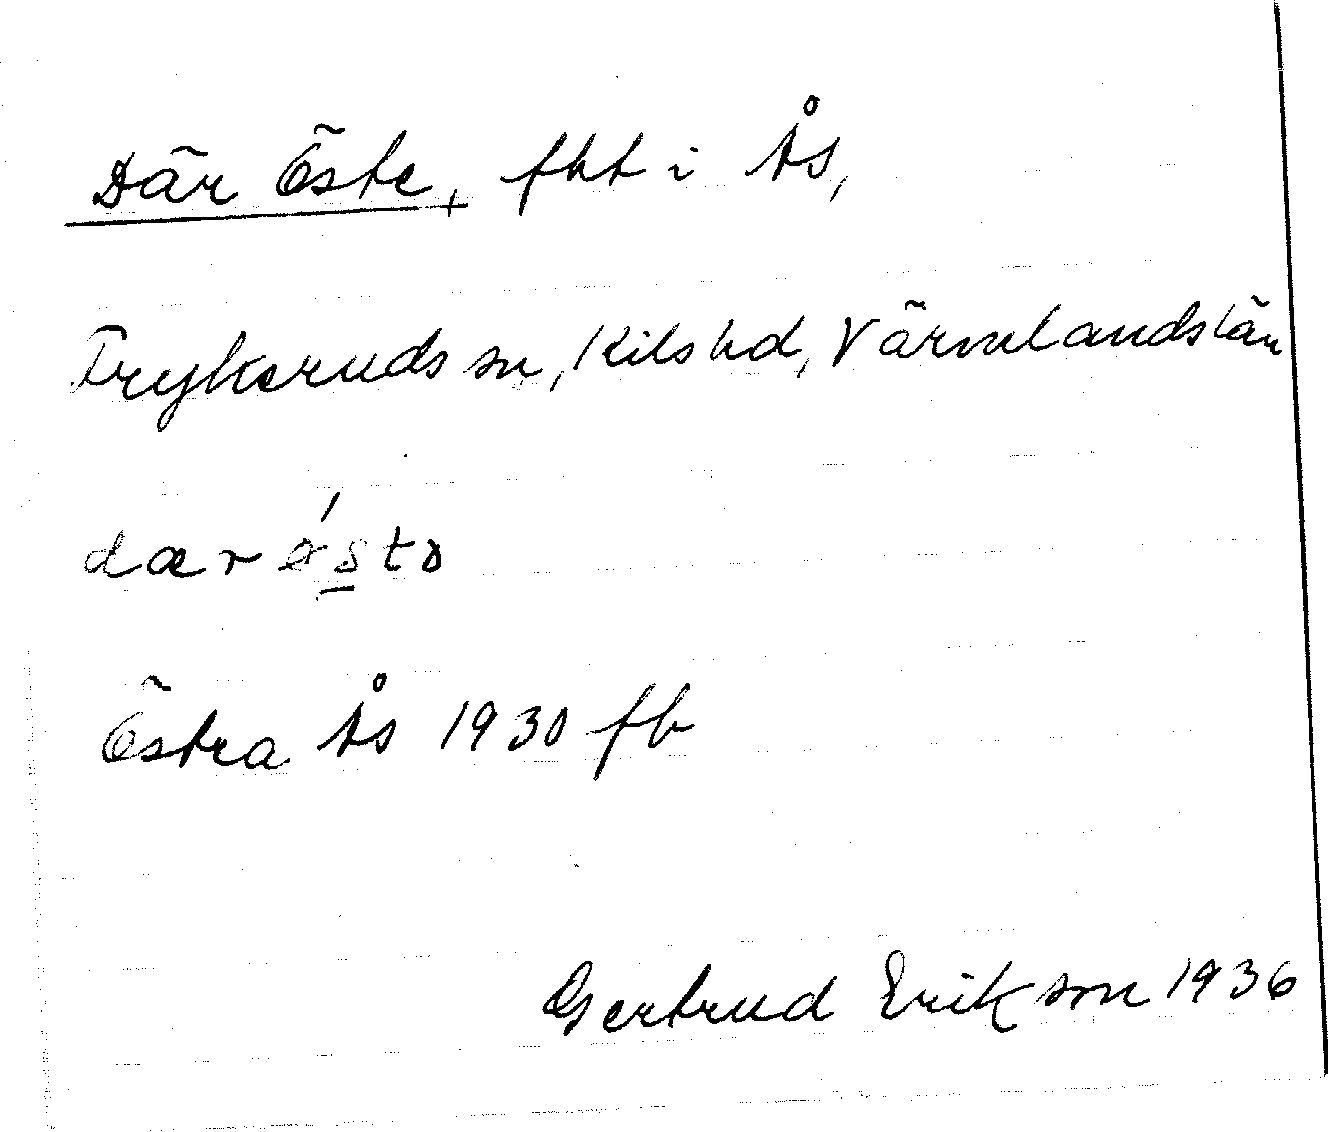 Där Öste, fht i Ås,
Frykeruds sn, Kils hd, Värmlands län
dær ǿstə
Östra Ås 1930 fb
Gertrud Erikson 1936